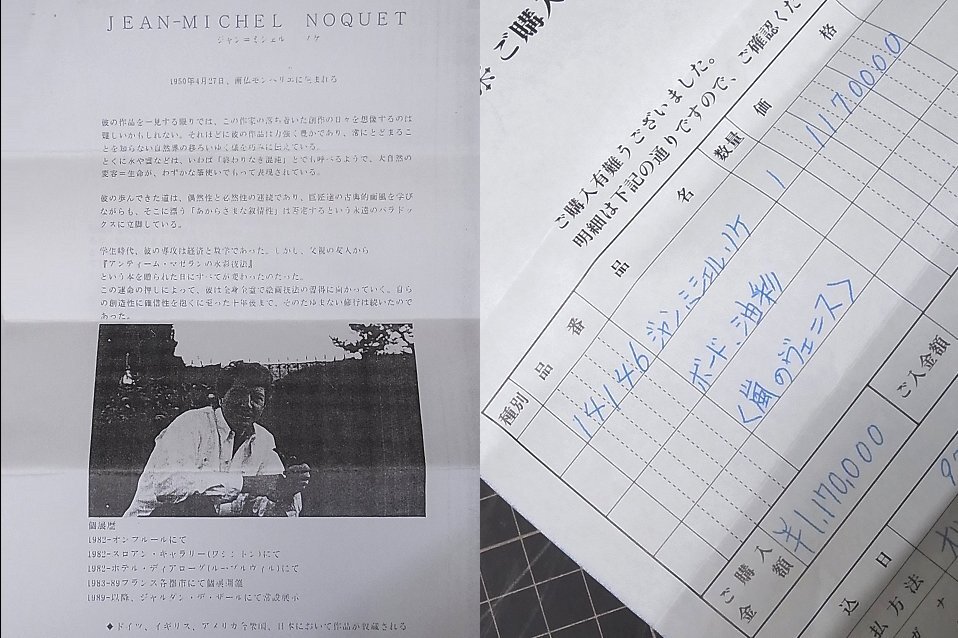 JEAN-MICHEL NOQUET
ジャン=ミシェル ノケ
1950年4月27日、南仏モンペリエに生まれる
彼の作品を一見する限りでは、この作家の落ち着いた創作の日々を想像するのは
難しいかもしれない。それほどに彼の作品は力強く豊かであり、常にとどまるこ
とを知らない自然界の移ろいゆく様を巧みに伝えている。
とくに水や雲などは、いわば「終わりなき混沌」とでも呼べるようで、大自然の
変容=生命が、わずかな筆使いでもって表現されている。
彼の歩んできた道は、偶然性と必然性の連続であり、巨匠達の古典的画風を学び
ながらも、そこに漂う「あからさまな叙情性」は
するという永遠のパラドッ
クスに立脚している。
学生時代、彼の専攻は経済と数学であった。しかし、父親の友人から
『アンティーム・マゼランの水彩技法』
という本を贈られた日にすべてが変わったのだった。
この運命の押しによって、彼は全身全霊で絵画技法の習得に向かっていく。自ら
の創造性に確信性を抱くに至った十年後まで、そのたゆまない修行は続いたので
あった。
個展暦
1982-オンフルールにて
1982-スロアン・ギャラリー(ワシントン)にて
1982-ホテル・ディアローグ(ルーブルヴィル)にて
1983-89フランス各都市にて個展開催
1989-以降、ジャルダン・デ・ザールにて常設展示
◆ドイツ、イギリス、アメリカ合衆国、日本において作品が収蔵される
ご購入
ご購入有難うございました。
明細は下記の通りですので、ご確認くだ
種別 品番 品名 数量 価格
14146 ジャンミシェル ノケ 1 1170000
ボード、油彩
<嵐のヴェニス>
ご購入金額 ¥1,170,000 ご入金額
込日
払方法